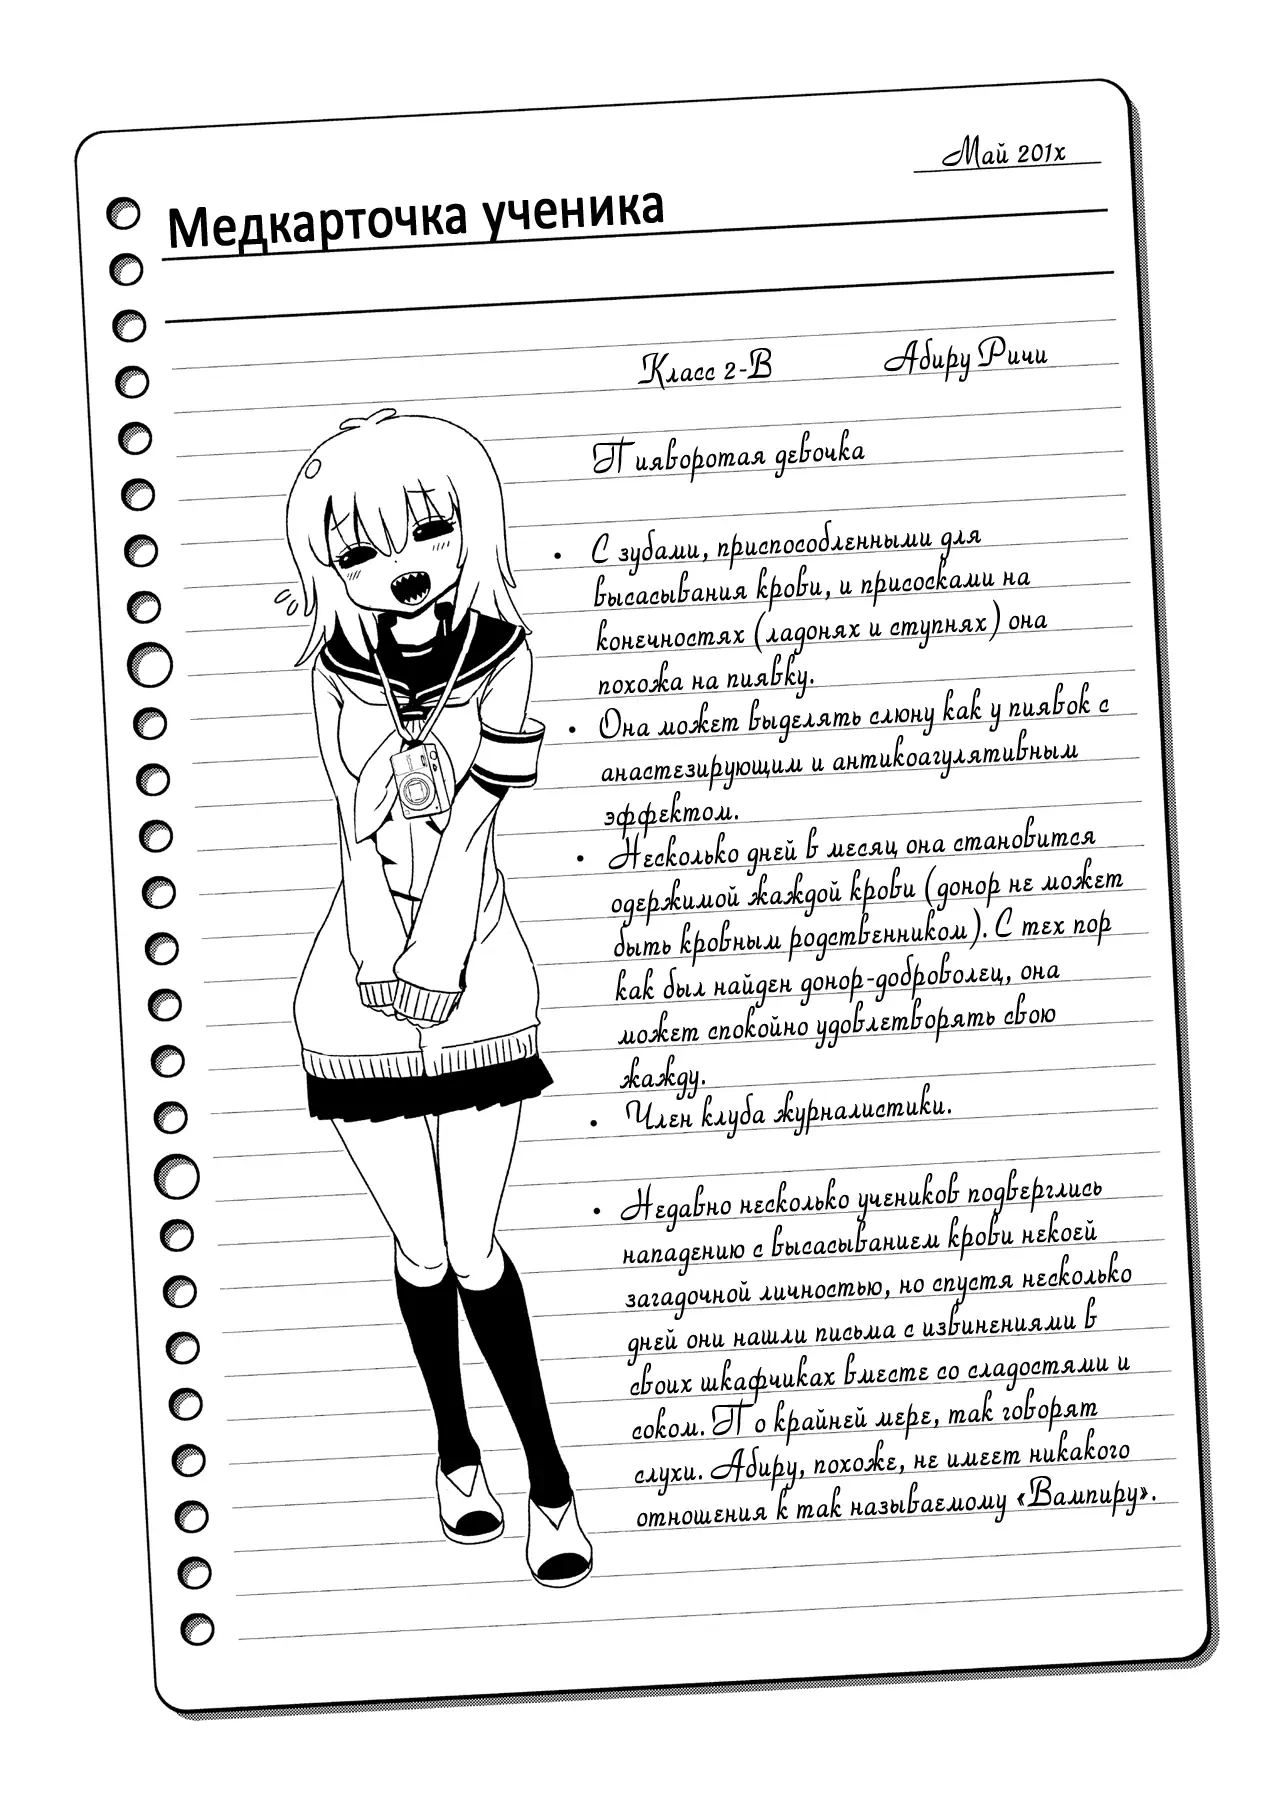 Май 201x
Медкарточка ученика
Класс 2-В Абиру Ричи
Пияворотая девочка
• С зубами, приспособленными для
высасывания крови, и присосками на
конечностях (ладонях и ступнях) она
похожа на пиявку.
• Она может выделять слюну как у пиявок с
анастезирующим и антикоагулятивным
эффектом.
• Несколько дней в месяц она становится
одержимой жаждой крови (донор не может
быть кровным родственником). С тех пор
как был найден донор-доброволец, она
может спокойно удовлетворять свою
жажду.
• Член клуба журналистики.
• Недавно несколько учеников подверглись
нападению с высасыванием крови некоей
загадочной личностью, но спустя несколько
дней они нашли письма с извинениями в
своих шкафчиках вместе со сладостями и
соком. По крайней мере, так говорят
слухи. Абиру, похоже, не имеет никакого
отношения к так называемому «Вампиру».